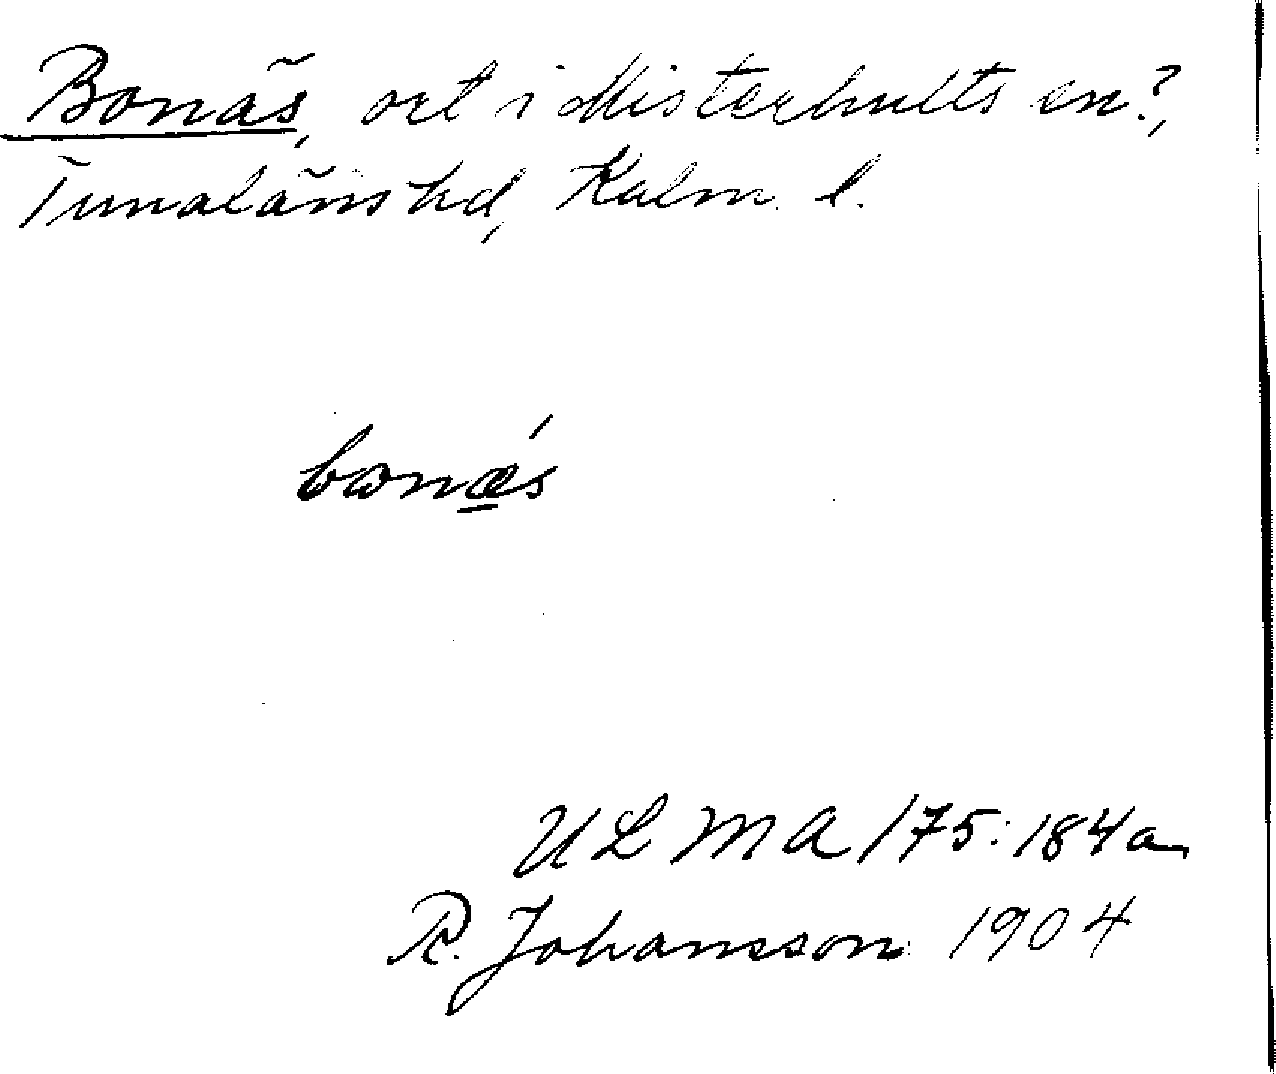 Bonäs, ort i Misterhults sn?,
Tunaläns hd, Kalm. l.
bωnǽ̲s
ULMA 175:184a
R. Johansson 1904